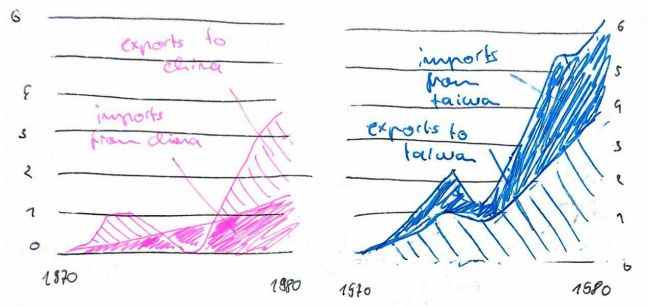 6
4
3
2
1
0
exports to
china
imports
from china
1970
1980
imports
from
taiwa
exports to
taiwa
6
5
4
3
2
1
0
1970
1980